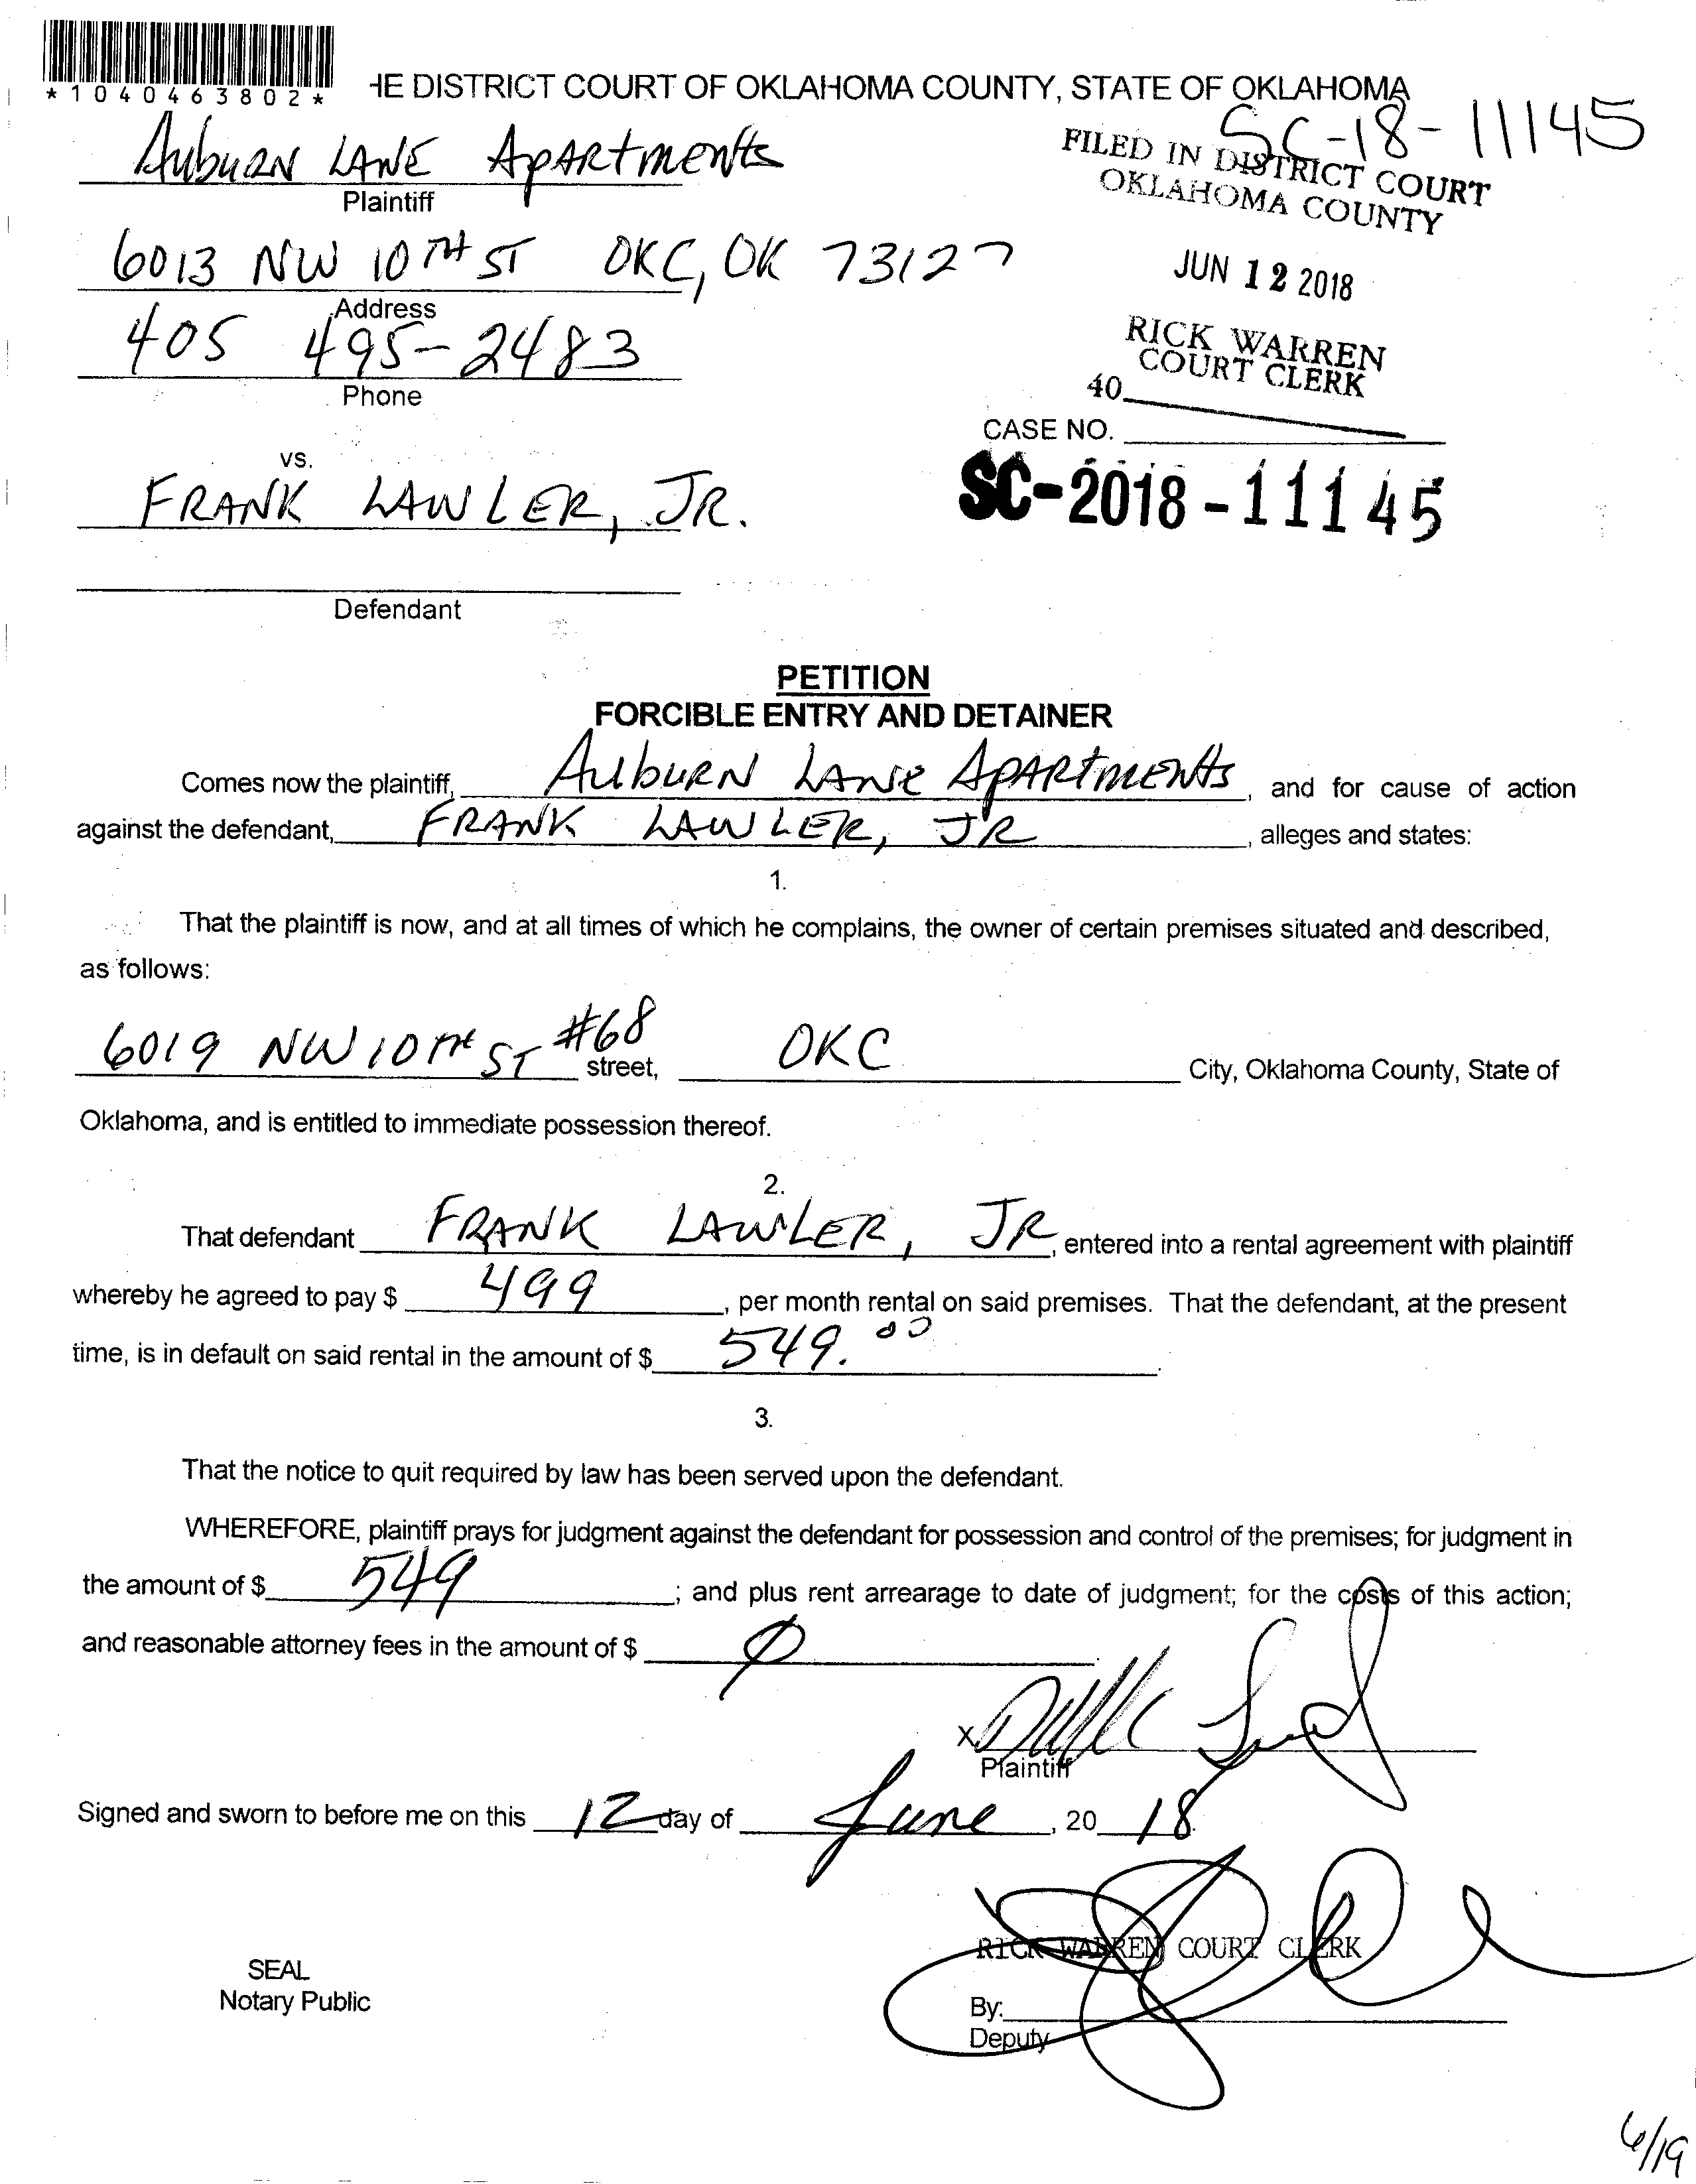 *1040463802*
HE DISTRICT COURT OF OKLAHOMA COUNTY, STATE OF OKLAHOMA
SC-18-11145
Auburn Lane Apartments
Plaintiff
FILED IN DISTRICT COURT
OKLAHOMA COUNTY
6013 NW 10TH ST OKC, OK 73127
Address
JUN 12 2018
405 495-2483
Phone
RICK WARREN
COURT CLERK
40
CASE NO.
SC-2018-11145
vs.
FRANK LAWLER, JR.
Defendant
PETITION
FORCIBLE ENTRY AND DETAINER
Comes now the plaintiff, Auburn Lane Apartments, and for cause of action
against the defendant, FRANK LAWLER, JR, alleges and states:
1.
That the plaintiff is now, and at all times of which he complains, the owner of certain premises situated and described,
as follows:
6019 NW 10TH ST #68 street, OKC City, Oklahoma County, State of
Oklahoma, and is entitled to immediate possession thereof.
2.
That defendant FRANK LAWLER, JR, entered into a rental agreement with plaintiff
whereby he agreed to pay $ 499, per month rental on said premises. That the defendant, at the present
time, is in default on said rental in the amount of $ 549.00.
3.
That the notice to quit required by law has been served upon the defendant.
WHEREFORE, plaintiff prays for judgment against the defendant for possession and control of the premises; for judgment in
the amount of $ 549; and plus rent arrearage to date of judgment; for the costs of this action;
and reasonable attorney fees in the amount of $ Ø.
X
Plaintiff
Signed and sworn to before me on this 12 day of June, 2018.
RICK WARREN COURT CLERK
SEAL
Notary Public
By:
Deputy
6/19